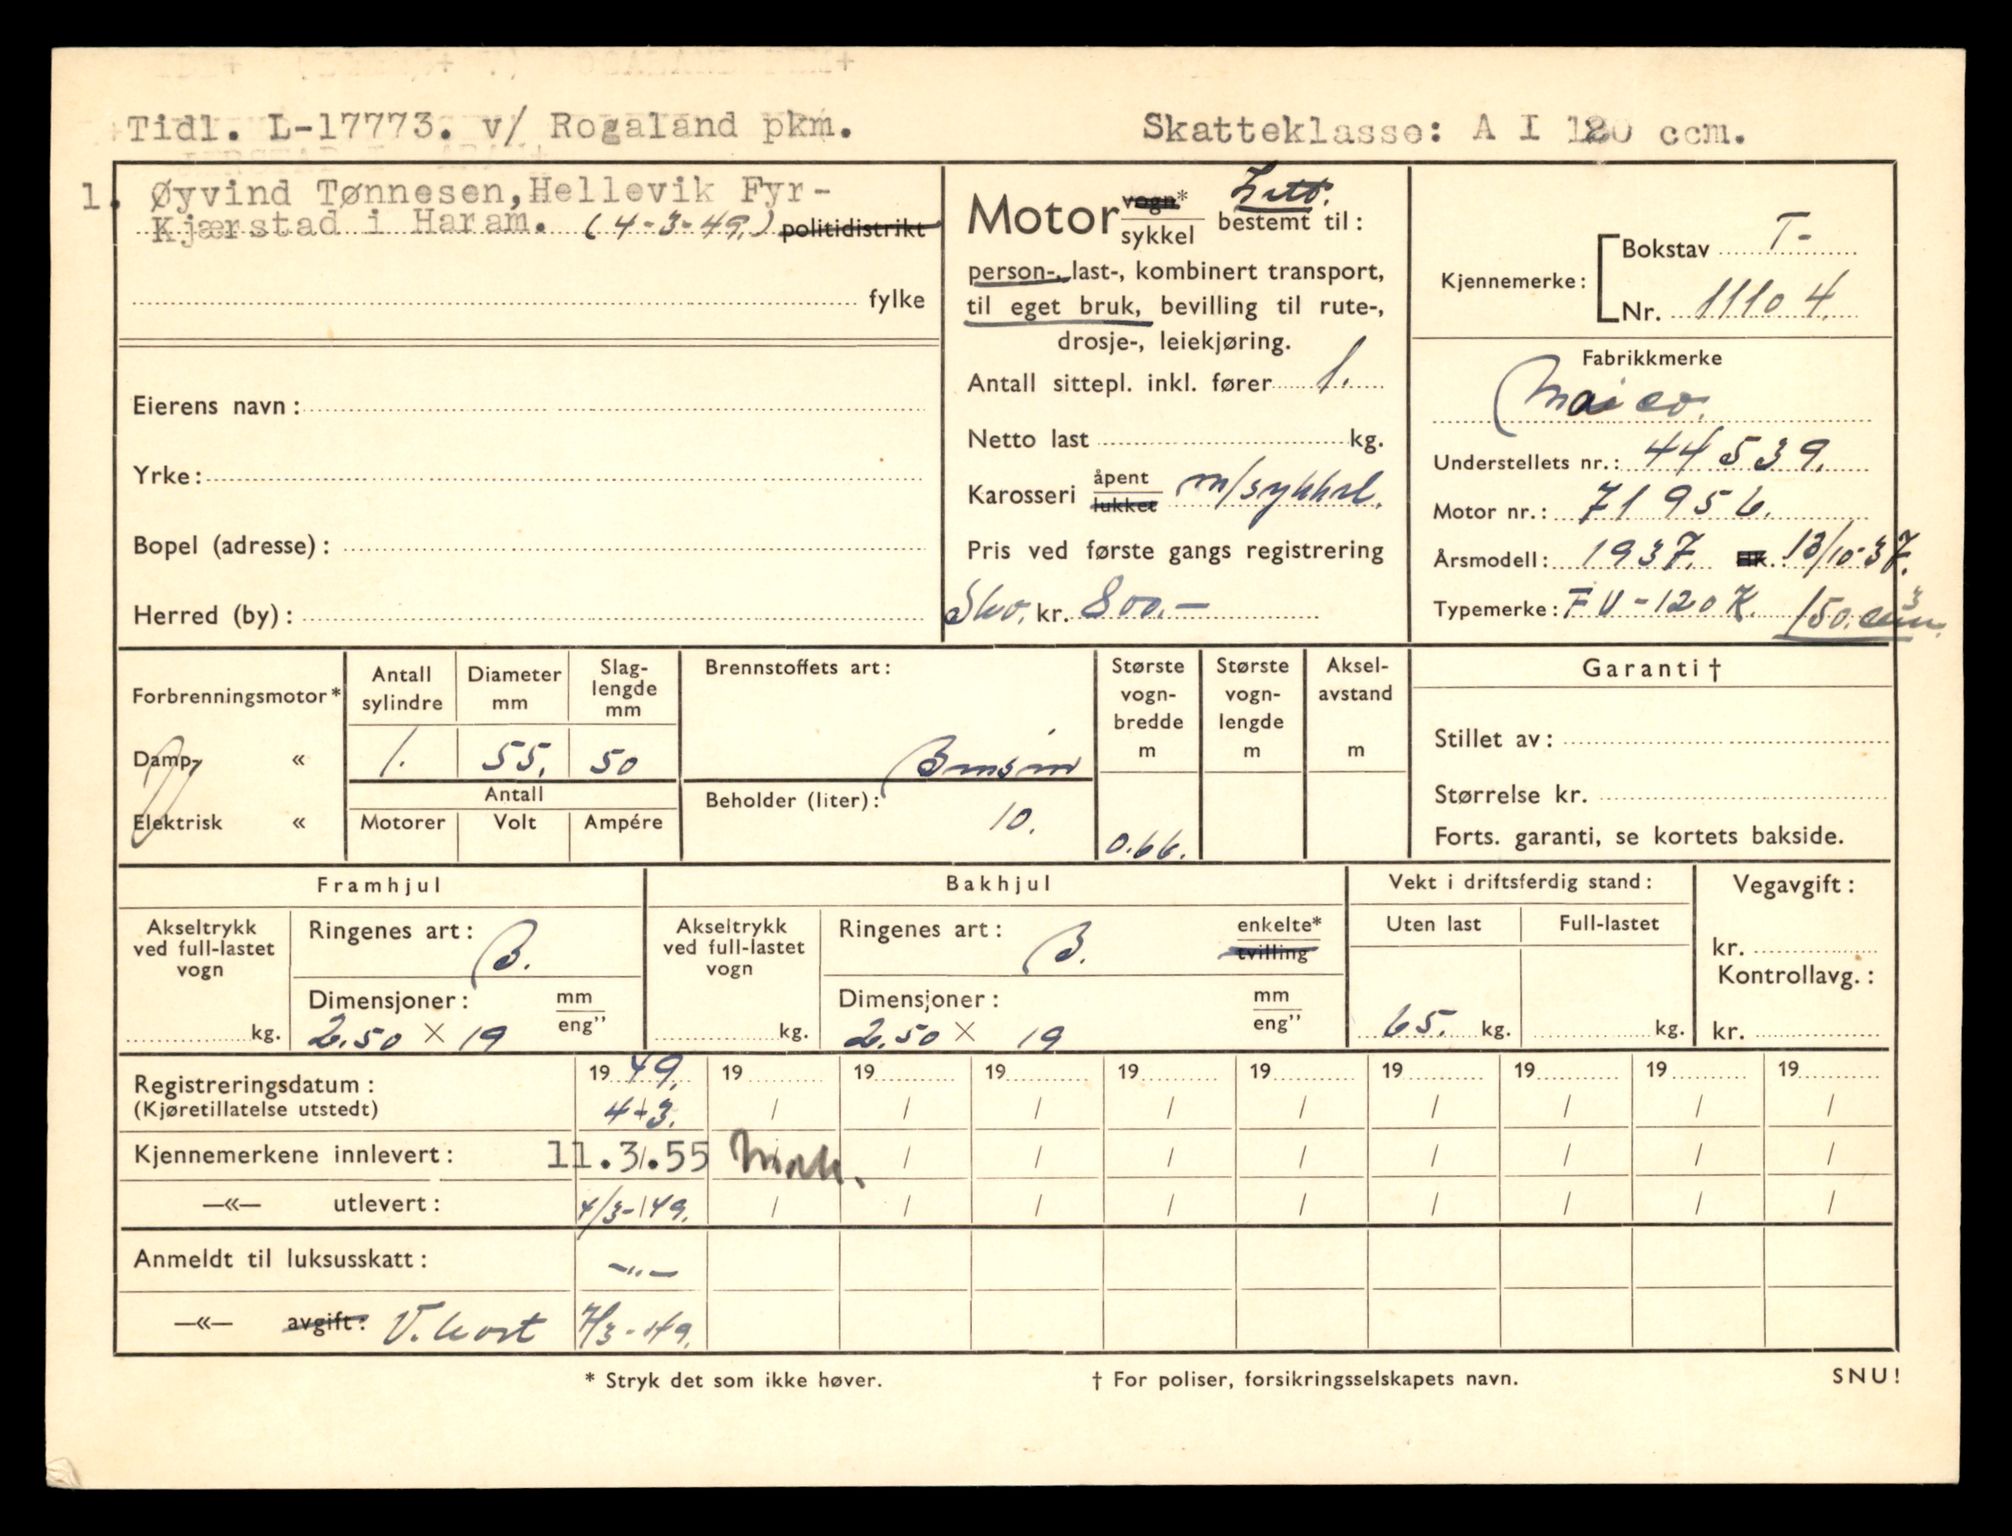 Tidl. L-17773. v/ Rogaland pkm.
Skatteklasse: A I 120 ccm.
1. Øyvind Tønnesen, Hellevik Fyr-
Kjærstad i Haram. (4-3-49.) politidistrikt
fylke
Eierens navn:
Yrke:
Bopel (adresse):
Herred (by):
Motor vogn* Lett.
sykkel bestemt til:
person-, last-, kombinert transport,
til eget bruk, bevilling til rute-,
drosje-, leiekjøring.
Antall sittepl. inkl. fører 1.
Netto last kg.
Karosseri åpent m/sykkel.
lukket
Pris ved første gangs registrering
kr. 800.-
Kjennemerke: Bokstav T-
Nr. 11104.
Fabrikkmerke
Maico.
Understellets nr.: 44539.
Motor nr.: 71956.
Årsmodell: 1937. HK. 13/10-37.
Typemerke: FU-120 K. 150 ccm.
Forbrenningsmotor*
Damp- «
Elektrisk «
Antall sylindre
1.
Diameter mm
55.
Slaglengde mm
50
Antall
Motorer Volt Ampére
Brennstoffets art:
Bensin
Beholder (liter):
10.
Største vognbredde m
0.66.
Største vognlengde m
Akselavstand m
Garanti†
Stillet av:
Størrelse kr.
Forts. garanti, se kortets bakside.
Framhjul
Akseltrykk ved full-lastet vogn
kg.
Ringenes art: B.
Dimensjoner: mm
2.50 × 19 eng"
Bakhjul
Akseltrykk ved full-lastet vogn
kg.
Ringenes art: B. enkelte*
tvilling
Dimensjoner: mm
2.50 × 19 eng"
Vekt i driftsferdig stand:
Uten last Full-lastet
65. kg. kg.
Vegavgift:
kr.
Kontrollavg.:
kr.
Registreringsdatum: 1949. 19 19 19 19 19 19 19 19 19
(Kjøretillatelse utstedt) 4-3. / / / / / / / / /
Kjennemerkene innlevert: 11.3.55 / / / / / / / /
—«— utlevert: 4/3-149. / / / / / / / / /
Anmeldt til luksusskatt: -"-
—«— avgift: V.kort 7/3-49.
* Stryk det som ikke høver.
† For poliser, forsikringsselskapets navn.
SNU!